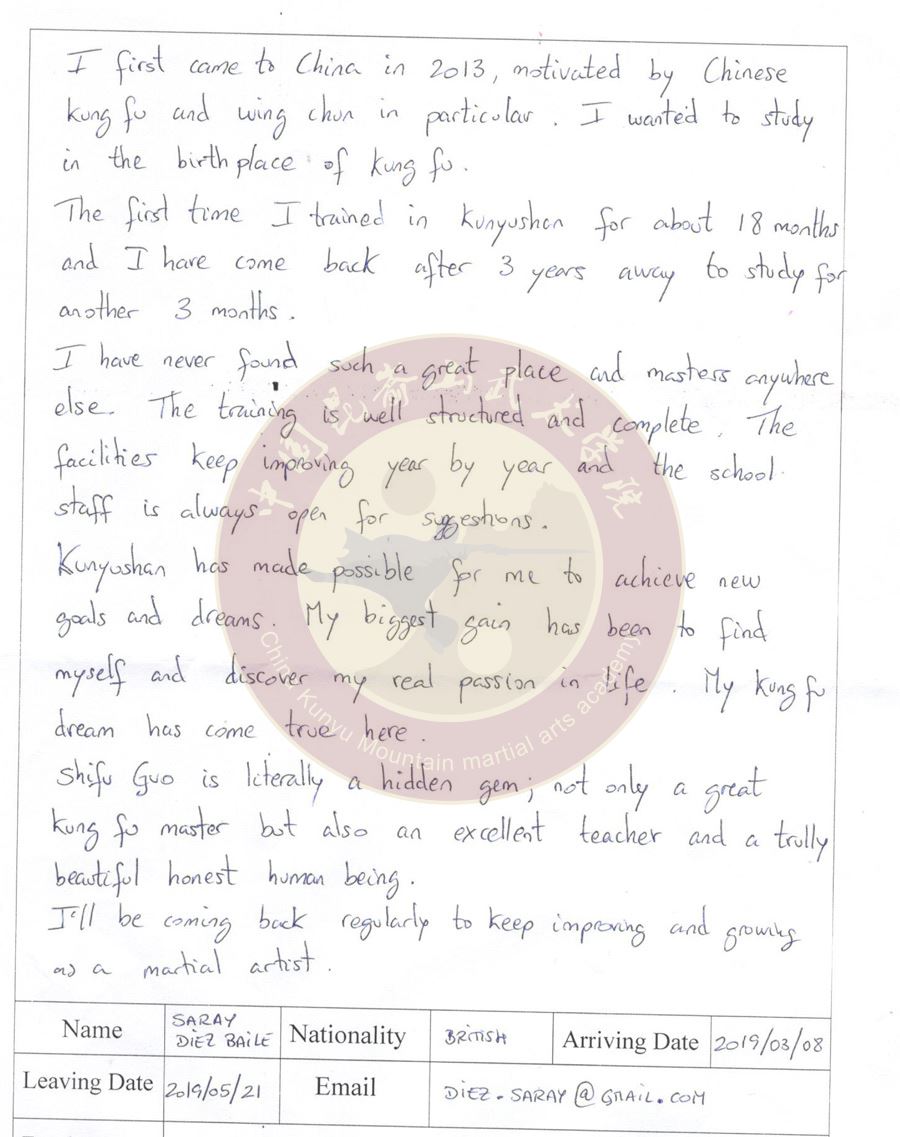 I first came to China in 2013, motivated by Chinese
kung fu and wing chun in particular. I wanted to study
in the birthplace of kung fu.
The first time I trained in Kunyushan for about 18 months
and I have come back after 3 years away to study for
another 3 months.
I have never found such a great place and masters anywhere
else. The training is well structured and complete. The
facilities keep improving year by year and the school
staff is always open for suggestions.
Kunyushan has made possible for me to achieve new
goals and dreams. My biggest gain has been to find
myself and discover my real passion in life. My kung fu
dream has come true here.
Shifu Guo is literally a hidden gem; not only a great
kung fu master but also an excellent teacher and a trully
beautiful honest human being.
I'll be coming back regularly to keep improving and growing
as a martial artist.
中国昆嵛山武术学院
China Kunyu Mountain martial arts academy
Name SARAY DIEZ BAILE Nationality BRITISH Arriving Date 2019/03/08
Leaving Date 2019/05/21 Email DIEZ.SARAY@GMAIL.COM